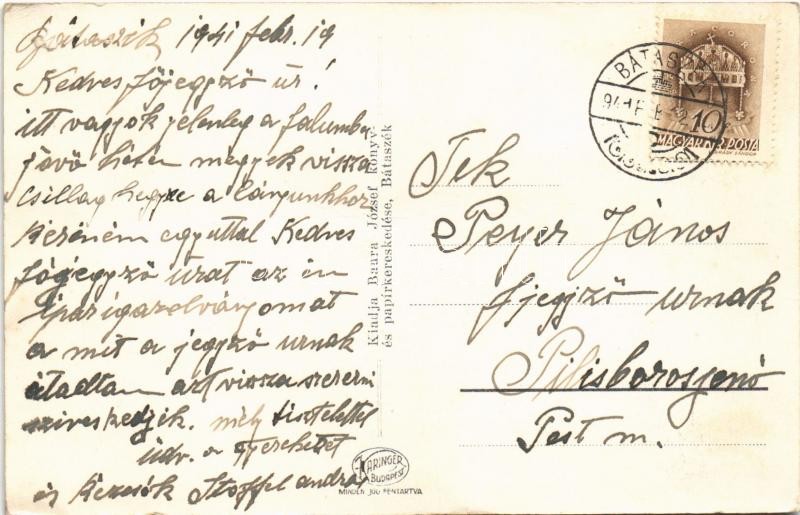 Bátaszék 1941 febr. 19
Kedves főjegyző úr!
itt vagyok jelenleg a falumba
jövő héten megyek vissza
Csillag hegyre a lányunkhoz
kérném egyuttal Kedves
főjegyző urat az én
ipar igazolványomat
a mit a jegyző urnak
átadtam azt vissza szerezni
sziveskedjék. mély tisztelettel
üdv. a gyereket
és kézcsók Stoffel andrás
Kiadja Baara József könyv-
és papirkereskedése, Bátaszék
KARINGER
BUDAPEST
MINDEN JOG FENTARTVA
BÁTASZÉK
10
MAGYAR KIR. POSTA
Tek
Peyer János
fjegyző urnak
Pilisborosjenő
Pest m.